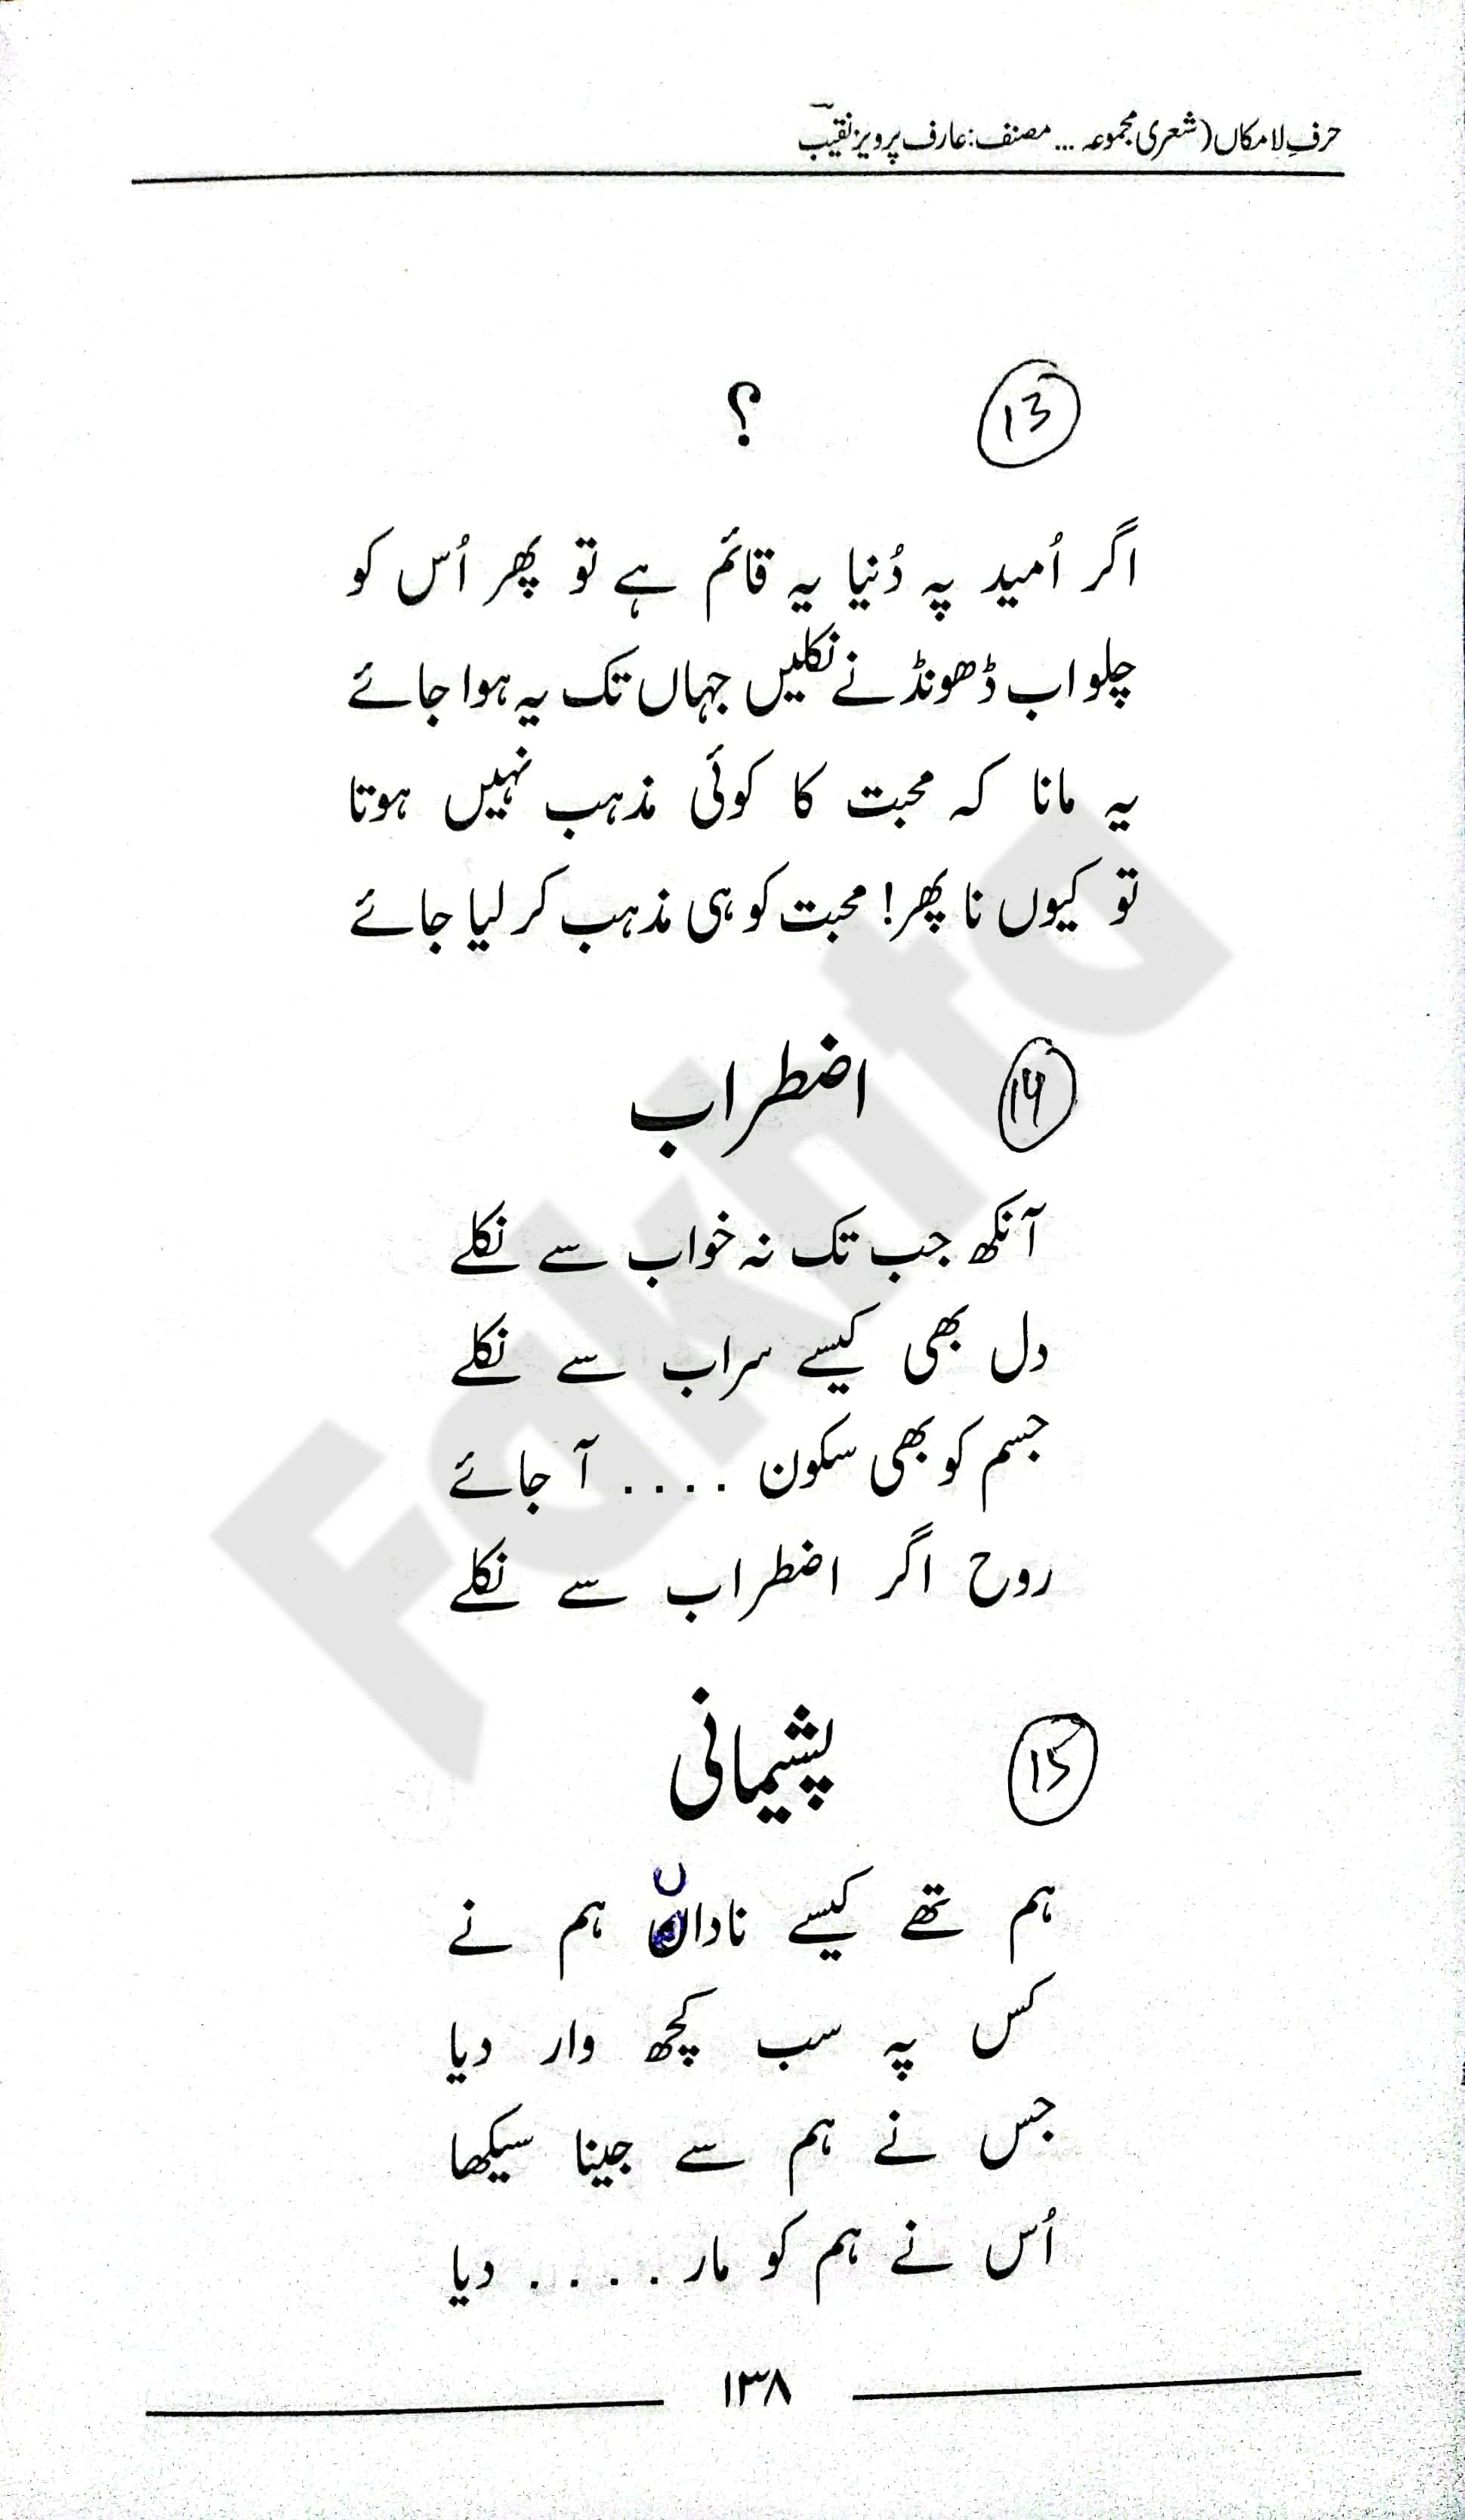 حرفِ لامکاں (شعری مجموعہ ... مصنف: عارف پرویز نقیبؔ
13
؟
اگر اُمید پہ دُنیا یہ قائم ہے تو پھر اُس کو
چلو اب ڈھونڈنے نکلیں جہاں تک یہ ہوا جائے
یہ مانا کہ محبت کا کوئی مذہب نہیں ہوتا
تو کیوں نا پھر! محبت کو ہی مذہب کر لیا جائے
14
اضطراب
آنکھ جب تک نہ خواب سے نکلے
دل بھی کیسے سراب سے نکلے
جسم کو بھی سکون .... آ جائے
روح اگر اضطراب سے نکلے
15
پشیمانی
ہم تھے کیسے ناداں ہم نے
کس پہ سب کچھ وار دیا
جس نے ہم سے جینا سیکھا
اُس نے ہم کو مار.... دیا
۱۳۸
Fakhta